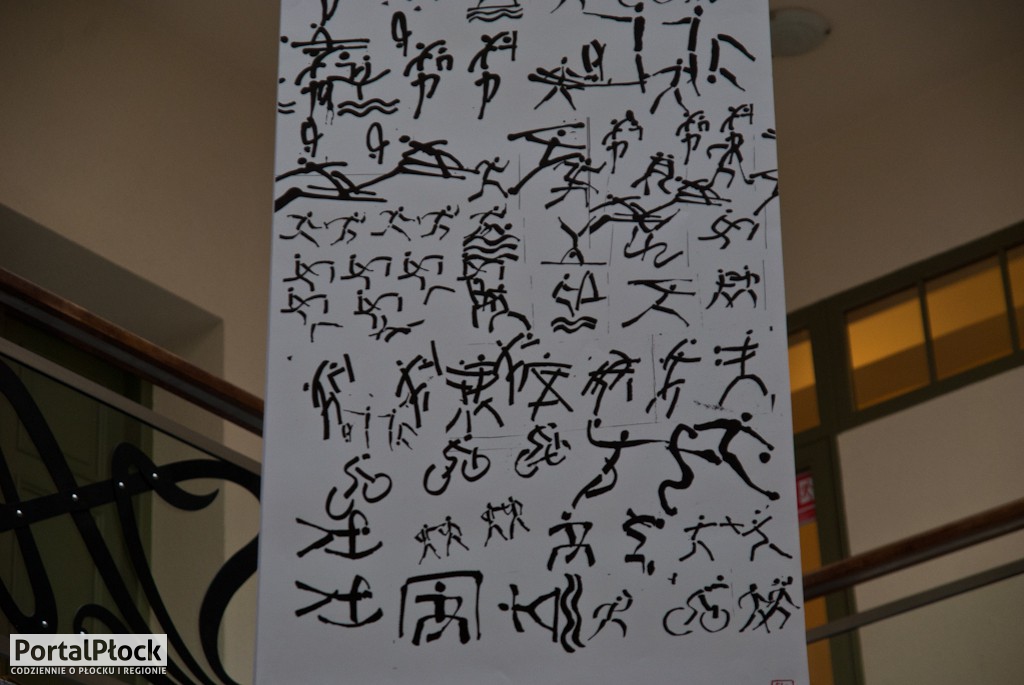 PortalPłock
CODZIENNIE O PŁOCKU I REGIONIE